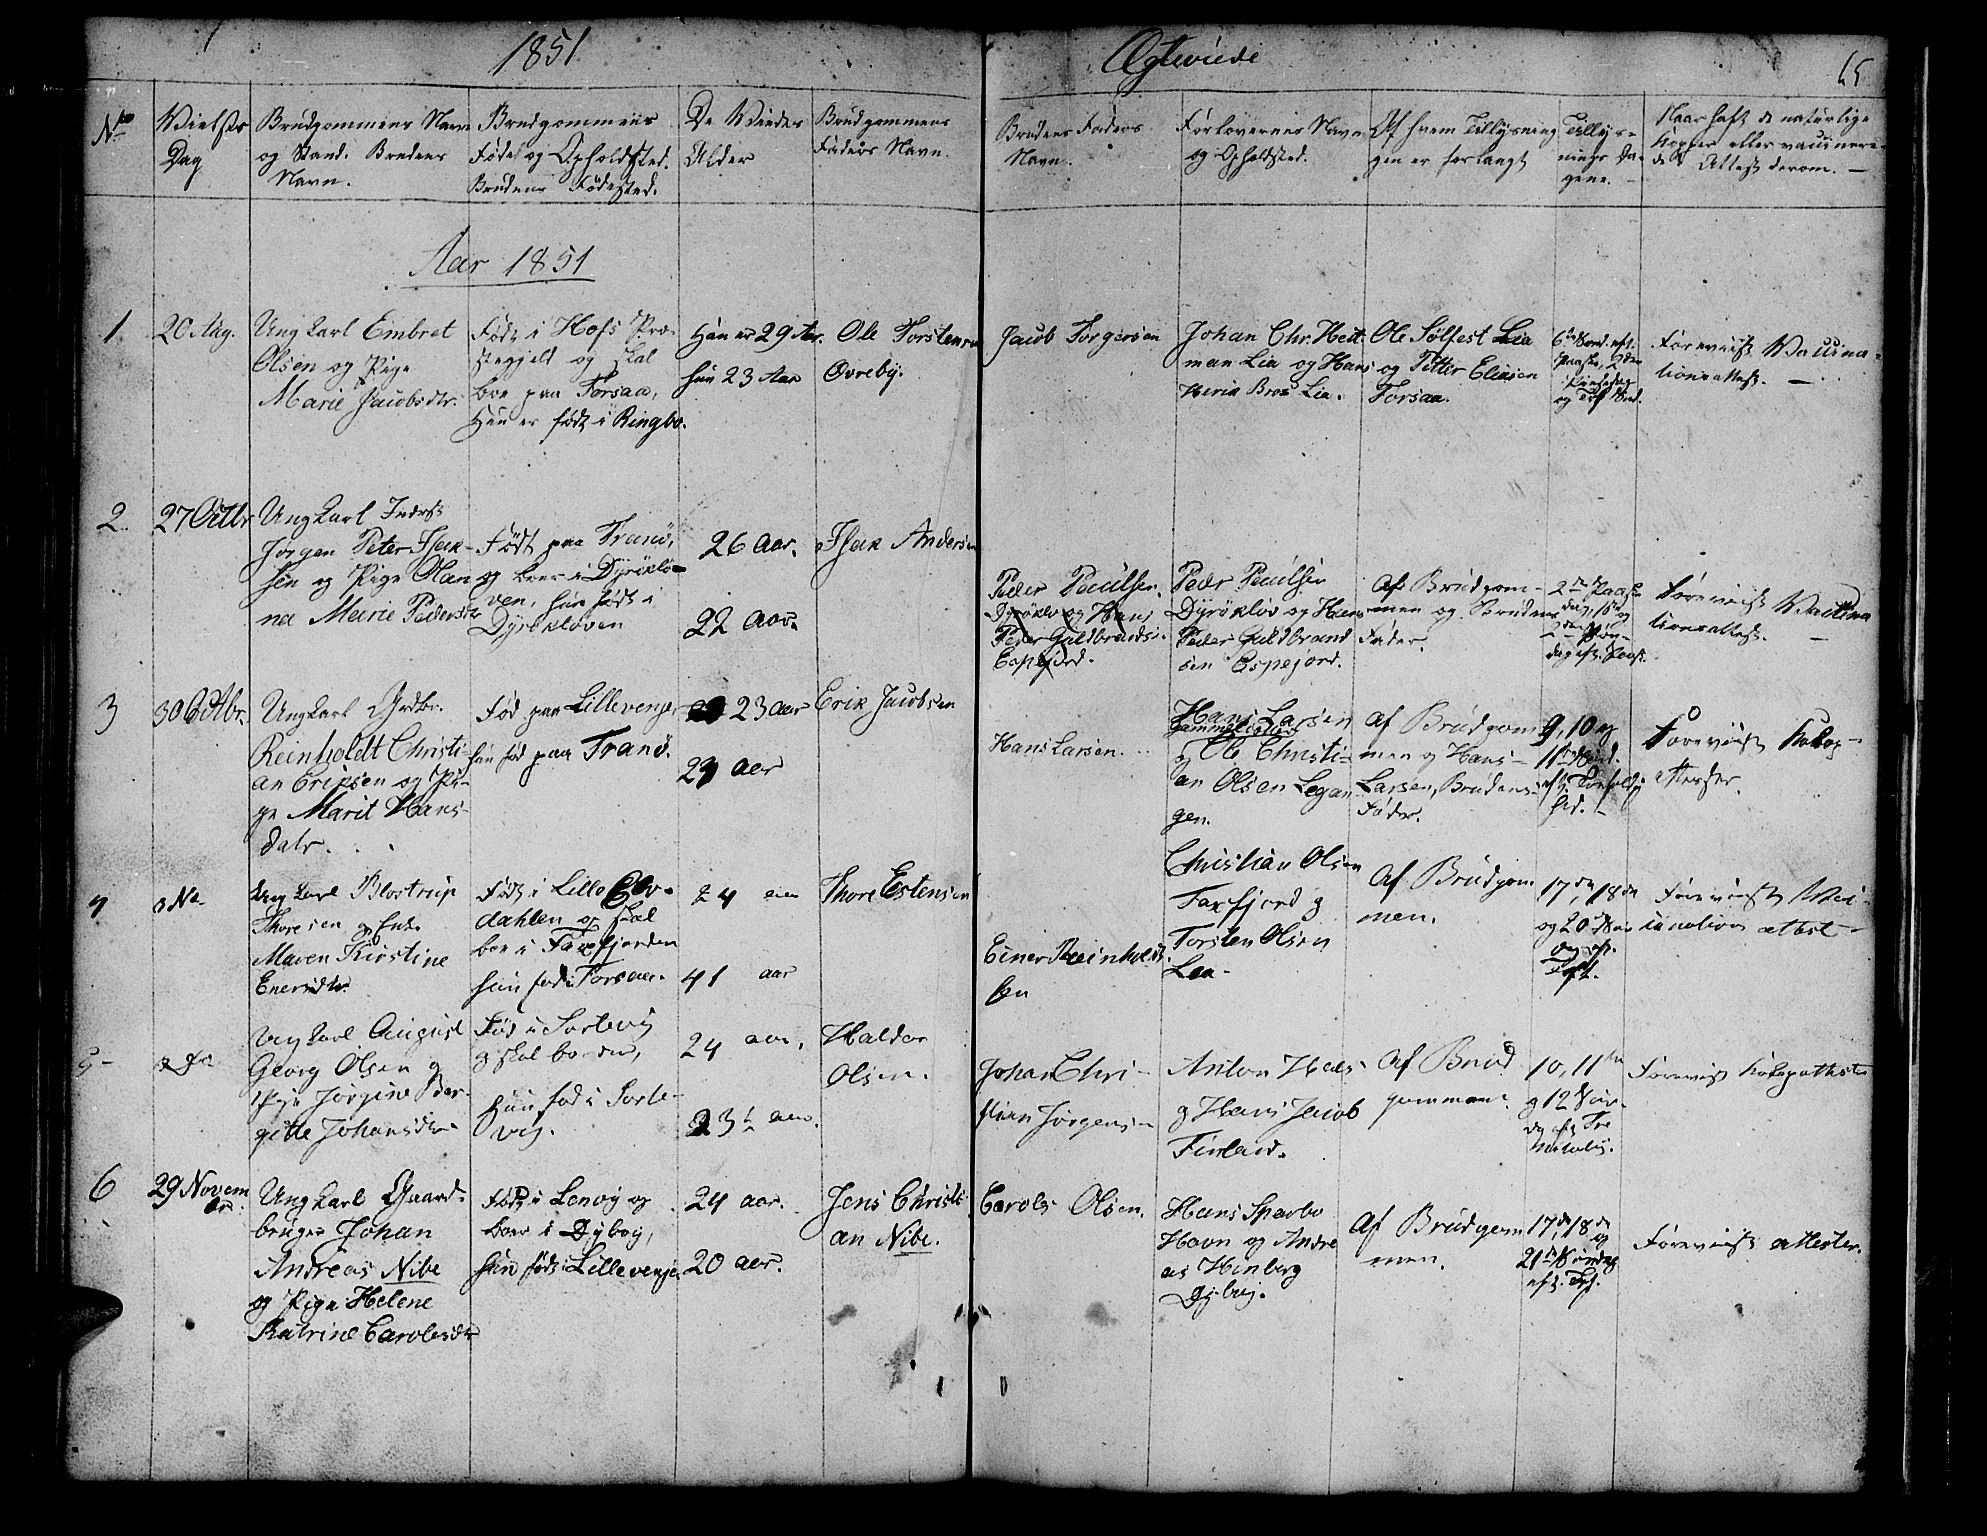 1851
Ægteviede
65
No
Vielses
Dag
Brudgommens Navn
og Stand. Brudens
Navn.
Brudgommens
Føde og Opholdsted.
Brudens Fødested.
De Viedes
Alder
Brudgommens
Faders Navn.
Brudens Faders
Navn.
Forlovernes Navn
og Opholdsted.
Af hvem Tillysnin
gen er forlangt
Tillys-
nings Da-
gene.
Naar havt de naturlige
Kopper eller vaccinere-
de Attest derom. —
Aar 1851
1
20 Aug.
Ungkarl Embret
Olsen og Pige
Marie Jacobsdtr.
Født i Hofs Præ-
stegjeld og skal
boe paa Torsaa,
Hun er født i Ringbo.
Han er 29 Aar.
hun 23 Aar
Ole Torstensen
Øvreby.
Jacob Torgersen
Johan Chr. Heit
man Lia og Hans
Lia.
Ole Sølfest Lia
og Petter Eliasen
Torsaa.
6te Sønd. eft.
Paaske, 2den
Pintsedag
og Trf. Sønd.
Foreviist Vaccina-
tionsattest. —
2.
27 Octbr
Ungkarl Inderst
Jørgen Peter Isak-
sen og Pige Olan
na Marie Pedersdtr
Født paa Tranø,
og boer i Dyröklö-
ven, hun født i
Dyröklöven
26 Aar.
22 Aar.
Isak Andersen
Peder Paulsen.
Dyröklöv og Hans
Peder Guldbrands.
Espejord.
Peder Paulsen
Dyröklöv og Hans
Peder Guldbrand
sen Espejord.
Af Brudgom-
men og Brudens
Fader.
2den Paaske
dag, 1ste og
2den Søn-
dag eft. Paask.
Foreviist Vaccina
tionsattest. —
3
30 Octbr.
Ungkarl Grdbr.
Reinholdt Christi-
an Eriksen og Pi-
ge Marit Hans-
datr.
Fød paa Lillevenje
hun fød paa Tranø.
23 aar
29 aar
Erik Jacobsen
Hans Larsen.
Hans Larsen
og Ole Christi-
an Olsen Legan
gen.
Af Brudgom-
men og Hans
Larsen, Brudens
Fader.
9, 10 og
11te Sønd.
eft. Trefoldig
hed. —
Foreviist Kokop-
attester.
4
do
Ungkarl Blostrup
Thoresen og Enke
Maren Kirstine
Enersdtr.
Født i Lille Elv-
dahlen og skal
boe i Faxfjorden
hun fød i Torsaa.
24 aar
41 aar
Thore Estensen
Einer Reinholdt
sen
Christian Olsen
Faxfjord og
Torsten Olsen
Lia.
Af Brudgom
men.
17de, 18de
og 20de Søn
dag eft.
Trft.
Foreviist Vac-
cination attest
5
do
Ungkarl August
Georg Olsen og
Pige Jørgine Ber-
gitte Johansdtr.
Fød i Sortevig
og skal bo der,
hun fød i Sorte-
vig.
24 aar,
23½ aar.
Haldor
Olsen.
Johan Chri-
stian Jørgensen
Anton Hals
og Hans Jacob
Finland.
Af Brud
gommen.
10, 11te
og 12 Søn-
dag eft. Tre
Foreviist Kokopattester
6
29 Novem
br.
Ungkarl Gaard-
bruger Johan
Andreas Nibe
og Pige Helene
Katrine Carolesdtr
Født i Lenvig og
boer i Dybvig,
hun født i Lillevenje
24 aar.
20 aar.
Jens Christi
an Nibe.
Caroles Olsen.
Hans Sparbo
Havn og Andre
as Hinberg
Dybvig.
Af Brudgom
men.
17de, 18de og
21de Søndag
eft. Trf.
Foreviist attester.